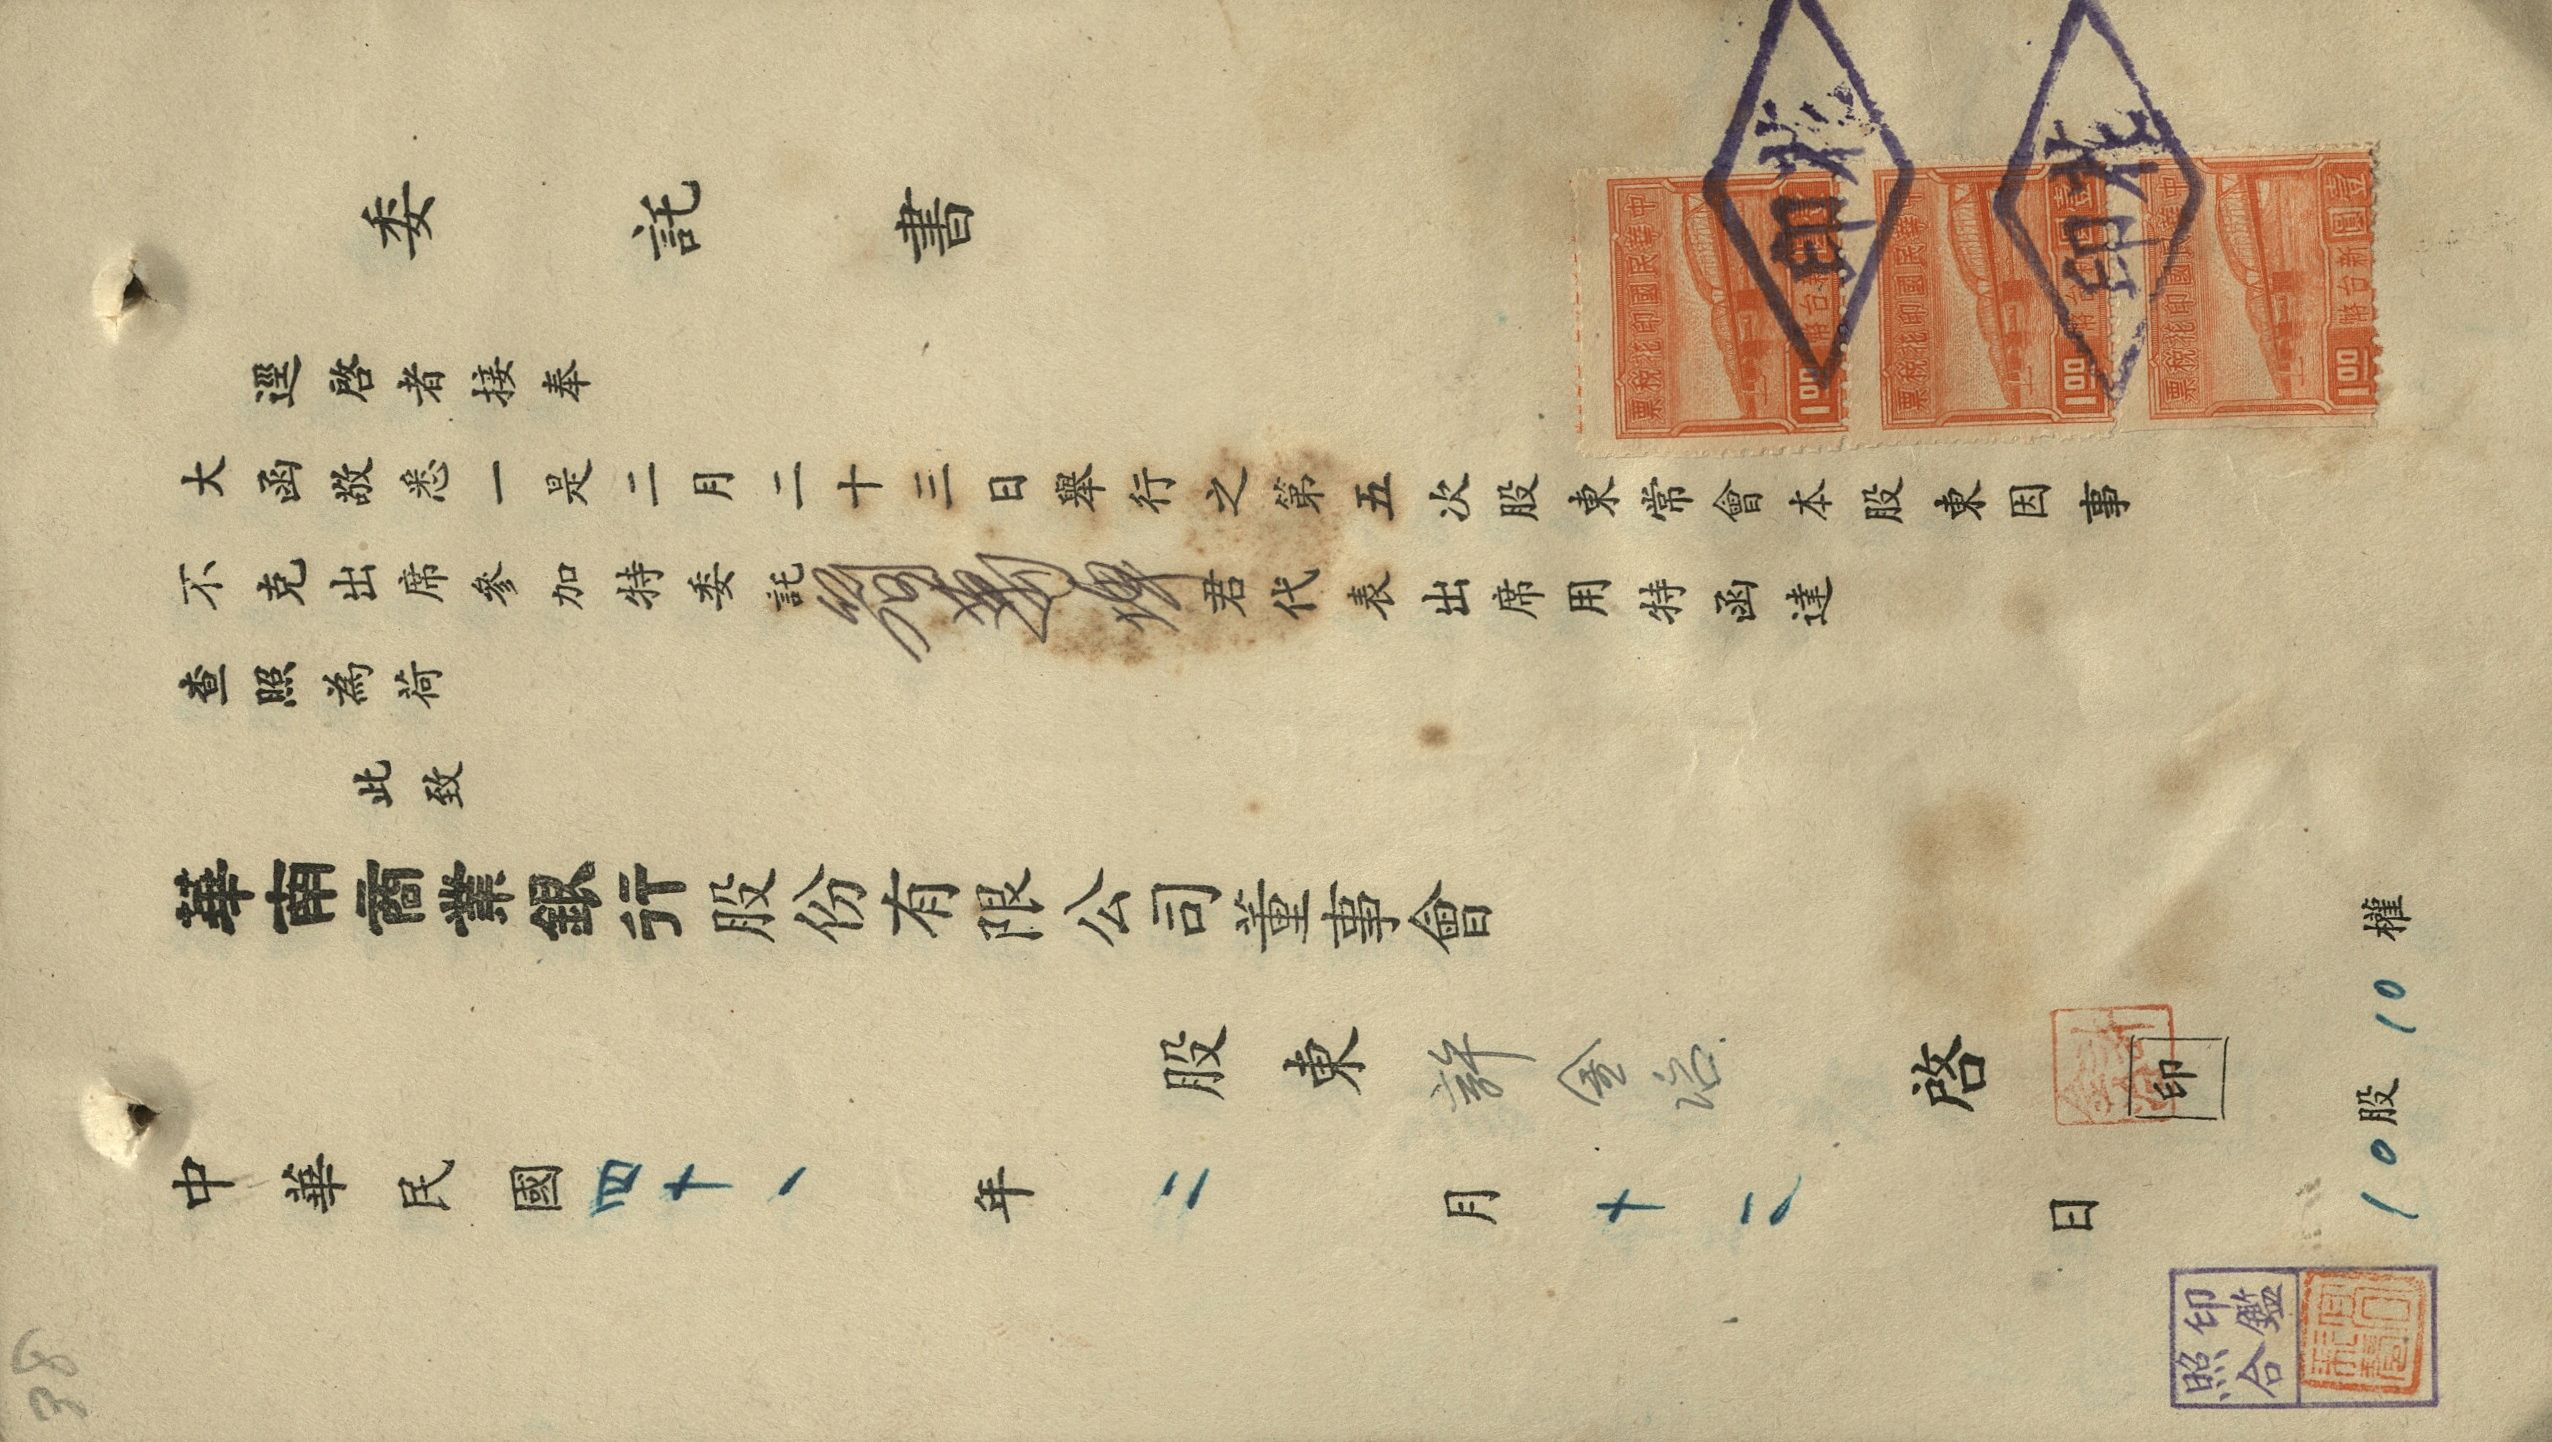 委託書
逕啓者接奉
大函敬悉一是二月二十三日舉行之第五次股東常會本股東因事
不克出席參加特委託
君代表出席用特函達
查照為荷
此致
華南商業銀行股份有限公司董事會
股東 許金治 啓 印
中華民國四十一年二月十二日
10股10權
印鑑
照合
中華民國印花稅票
新台幣
壹圓
1.00
中華民國印花稅票
新台幣
壹圓
1.00
中華民國印花稅票
新台幣
壹圓
1.00
印花
印花
38